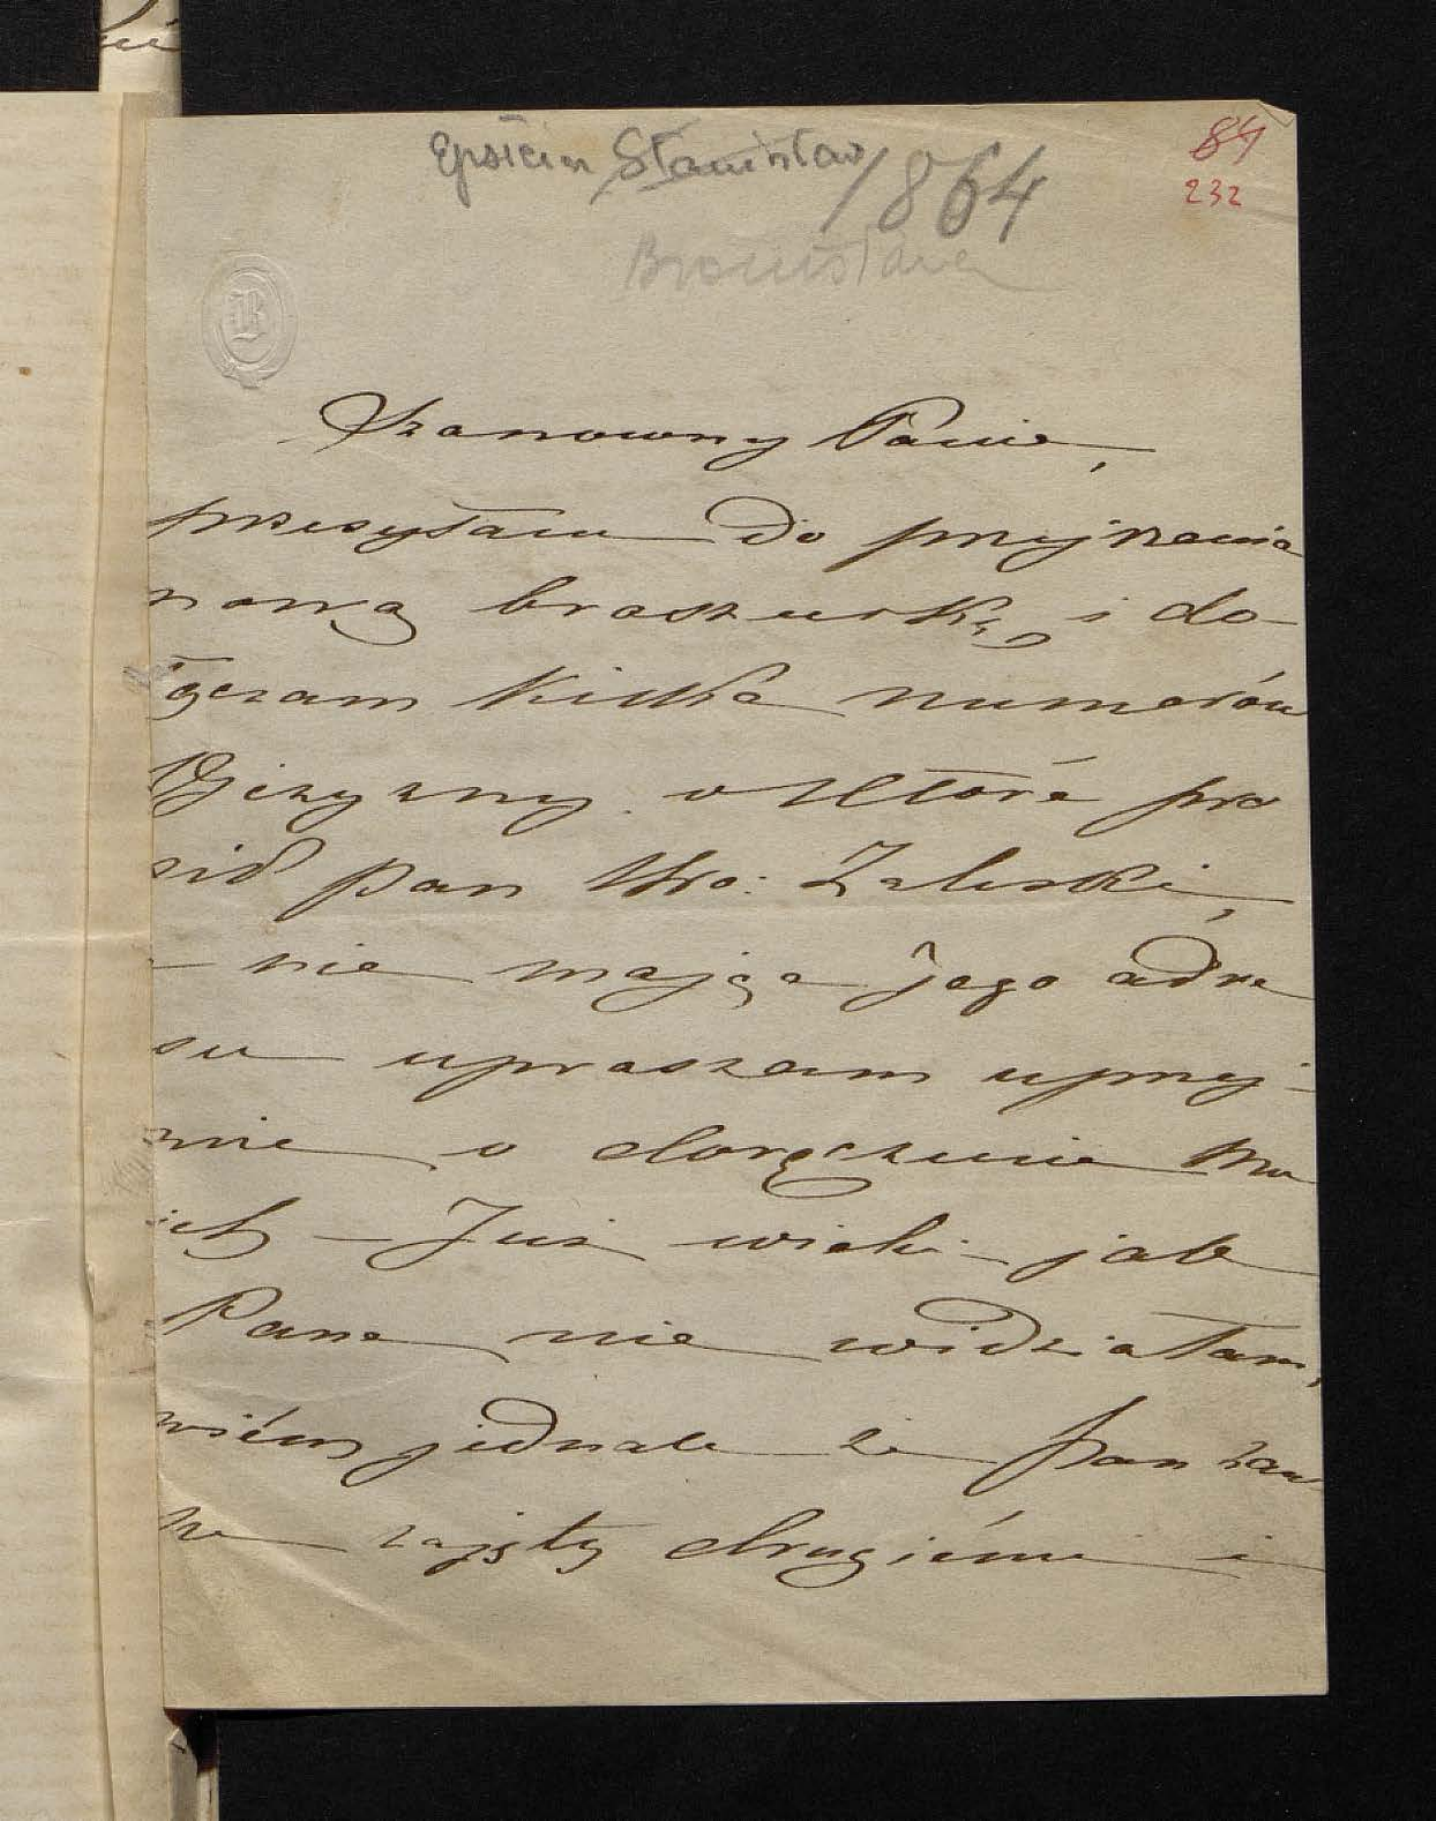 Epstein Stanisław 1864
84
232
Bronisława
B
Szanowny Panie,
przesyłam do przejrzenia
nową broszurkę, i do-
łączam kilka numerów
Ojczyzny o które pro
sił pan Bro: Zaleski,
– nie mając Jego adre
su upraszam uprzej-
mie o doręczenie Mu
ich – Już wieki jak
Pana nie widziałam,
wiém jednak że pan zaw
sze zajęty drugiémi i